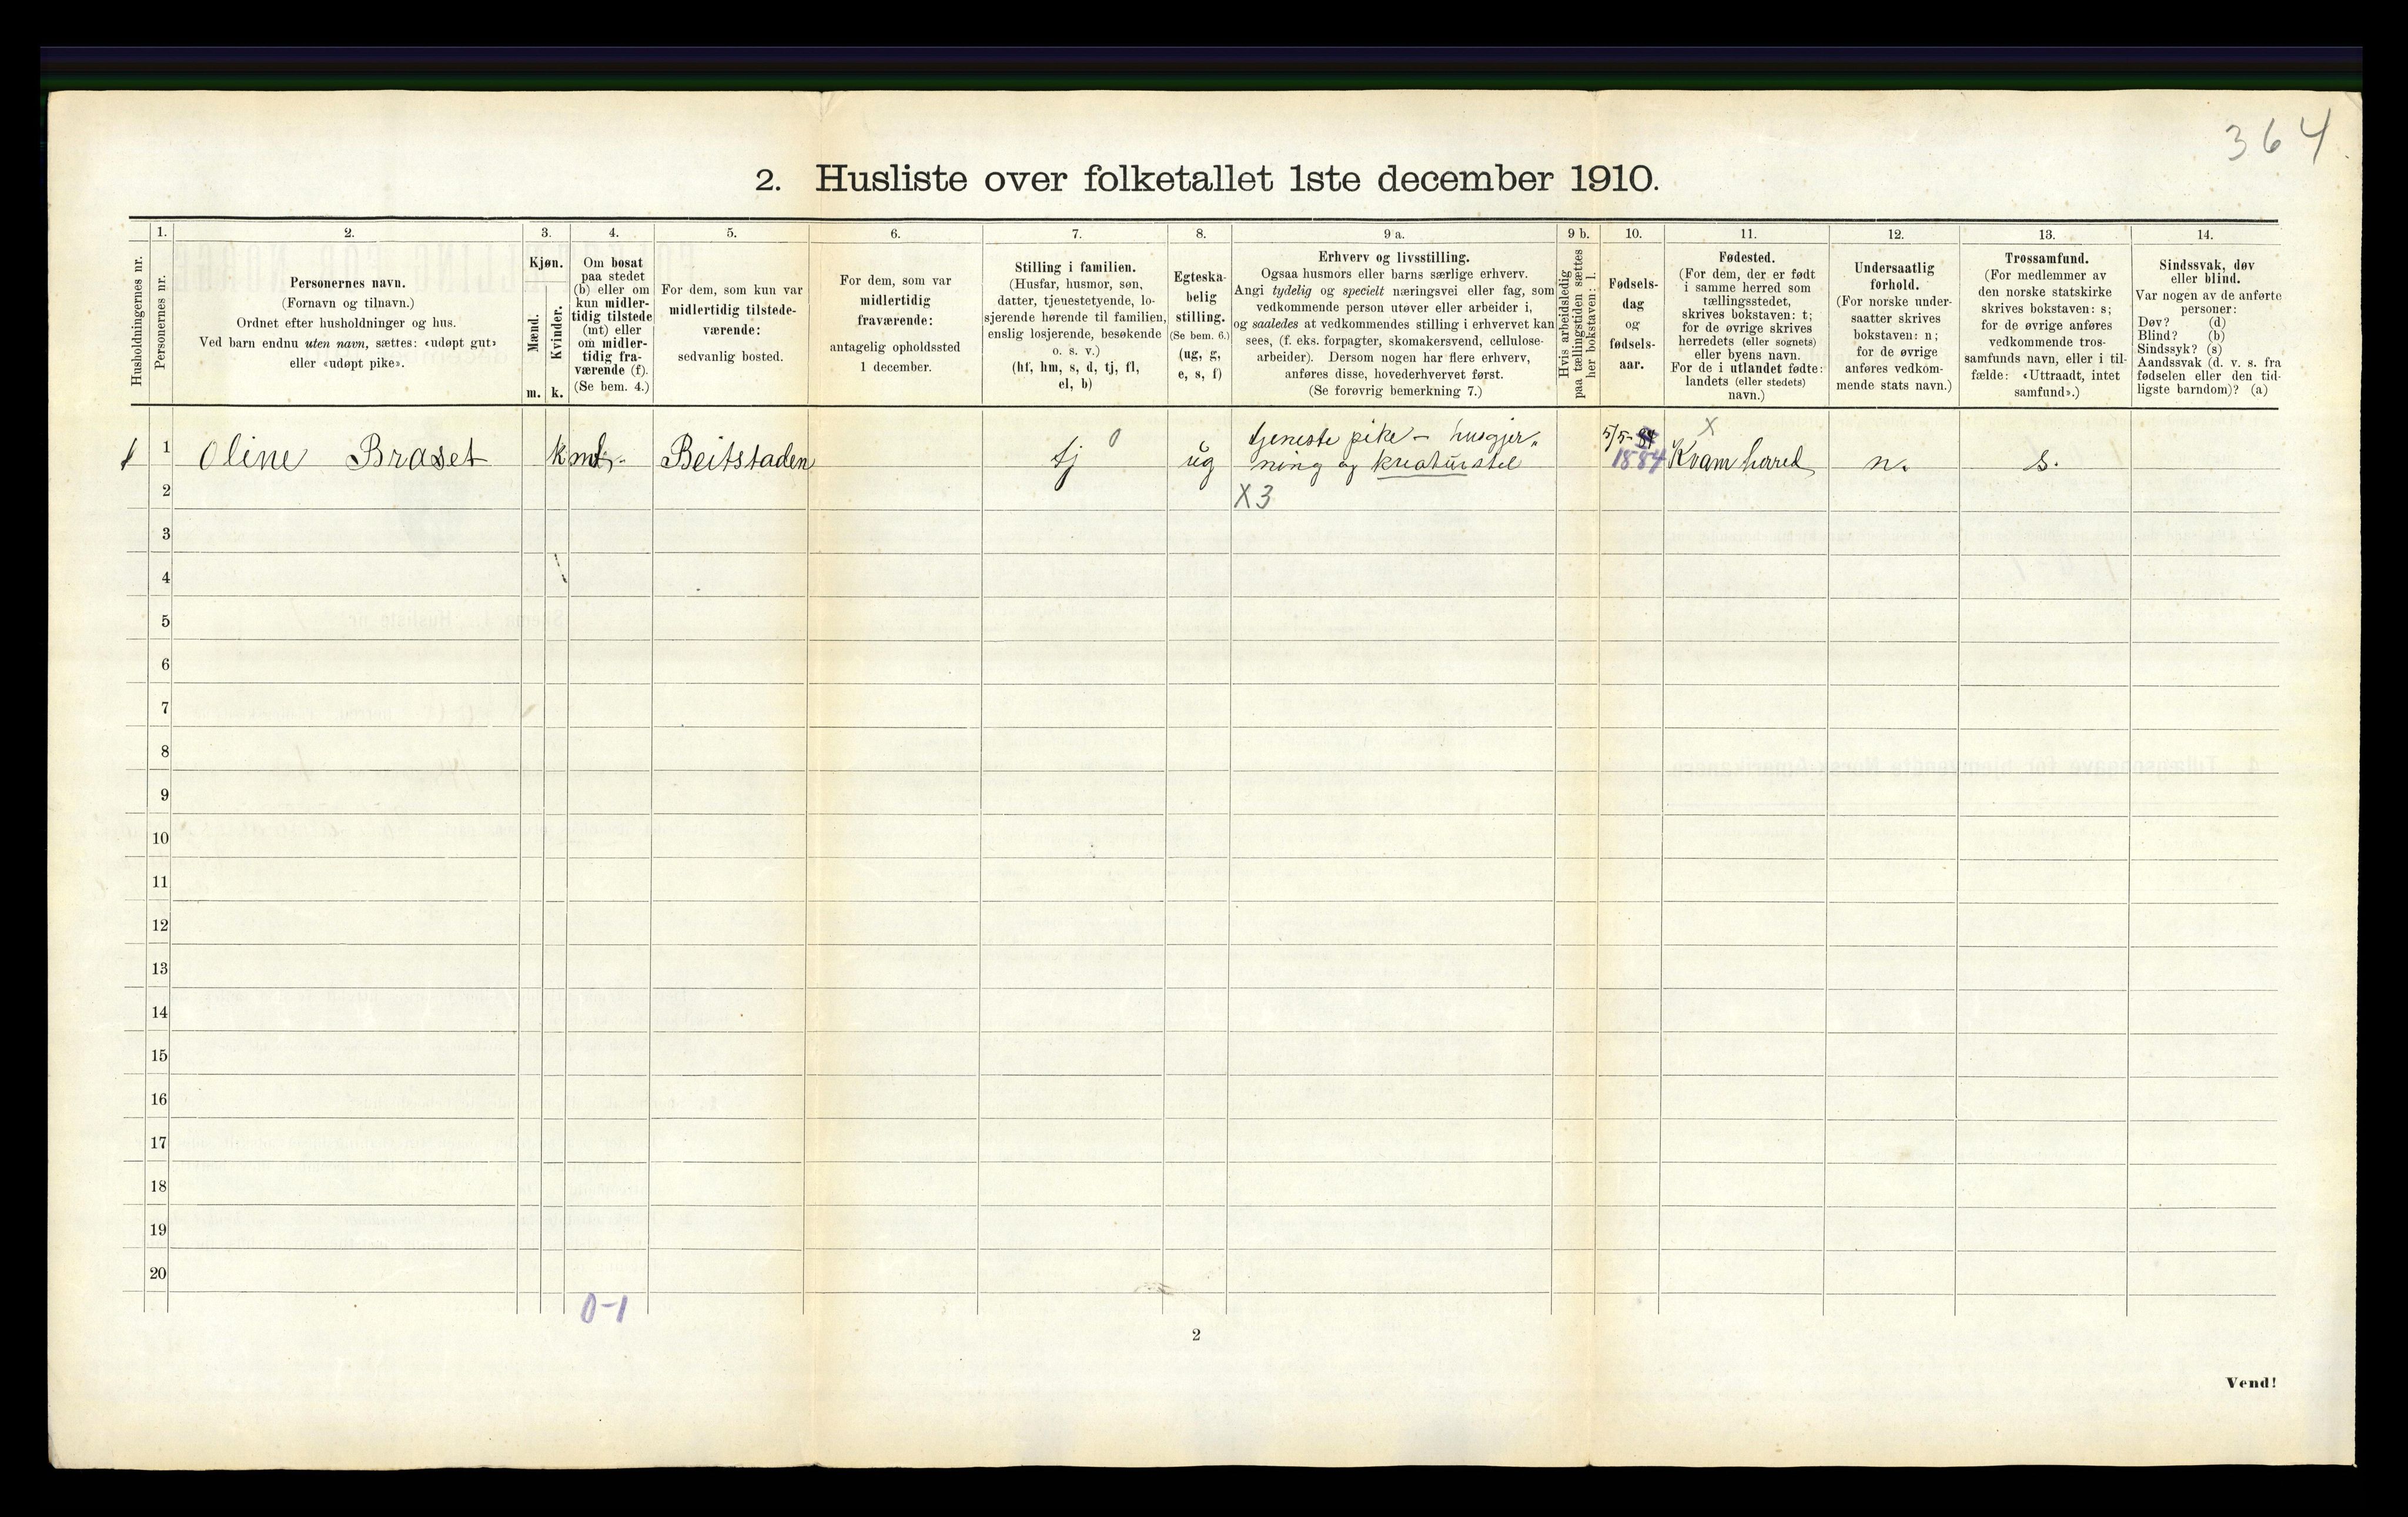 364
2. Husliste over folketallet 1ste december 1910.
Husholdningernes nr.
1.
Personernes nr.
2.
Personernes navn.
(Fornavn og tilnavn.)
Ordnet efter husholdninger og hus.
Ved barn endnu uten navn, sættes: «udøpt gut»
eller «udøpt pike».
3.
Kjøn.
Mænd.
Kvinder.
m. k.
4.
Om bosat
paa stedet
(b) eller om
kun midler-
tidig tilstede
(mt) eller
om midler-
tidig fra-
værende (f).
(Se bem. 4.)
5.
For dem, som kun var
midlertidig tilstede-
værende:
sedvanlig bosted.
6.
For dem, som var
midlertidig
fraværende:
antagelig opholdssted
1 december.
7.
Stilling i familien.
(Husfar, husmor, søn,
datter, tjenestetyende, lo-
sjerende hørende til familien,
enslig losjerende, besøkende
o. s. v.)
(hf, hm, s, d, tj, fl,
el, b)
8.
Egteska-
belig
stilling.
(Se bem. 6.)
(ug, g,
e, s, f)
9 a.
Erhverv og livsstilling.
Ogsaa husmors eller barns særlige erhverv.
Angi tydelig og specielt næringsvei eller fag, som
vedkommende person utøver eller arbeider i,
og saaledes at vedkommendes stilling i erhvervet kan
sees, (f. eks. forpagter, skomakersvend, cellulose-
arbeider). Dersom nogen har flere erhverv,
anføres disse, hovederhvervet først.
(Se forøvrig bemerkning 7.)
9 b.
Hvis arbeidsledig
paa tællingstiden sættes
her bokstaven: l.
10.
Fødsels-
dag
og
fødsels-
aar.
11.
Fødested.
(For dem, der er født
i samme herred som
tællingsstedet,
skrives bokstaven: t;
for de øvrige skrives
herredets (eller sognets)
eller byens navn.
For de i utlandet fødte:
landets (eller stedets)
navn.)
12.
Undersaatlig
forhold.
(For norske under-
saatter skrives
bokstaven: n;
for de øvrige
anføres vedkom-
mende stats navn.)
13.
Trossamfund.
(For medlemmer av
den norske statskirke
skrives bokstaven: s;
for de øvrige anføres
vedkommende tros-
samfunds navn, eller i til-
fælde: «Uttraadt, intet
samfund».)
14.
Sindssvak, døv
eller blind.
Var nogen av de anførte
personer:
Døv? (d)
Blind? (b)
Sindssyk? (s)
Aandssvak (d. v. s. fra
fødselen eller den tid-
ligste barndom)? (a)
1 1 Oline Braset k mt. Beitstaden tj 0 ug tjeneste pike - husgjer-
ning og kreaturstel 5/5- 1884 X Kvam herred n. s.
2 X3
3
4
5
6
7
8
9
10
11
12
13
14
15
16
17
18
19
20
0-1
2
Vend!